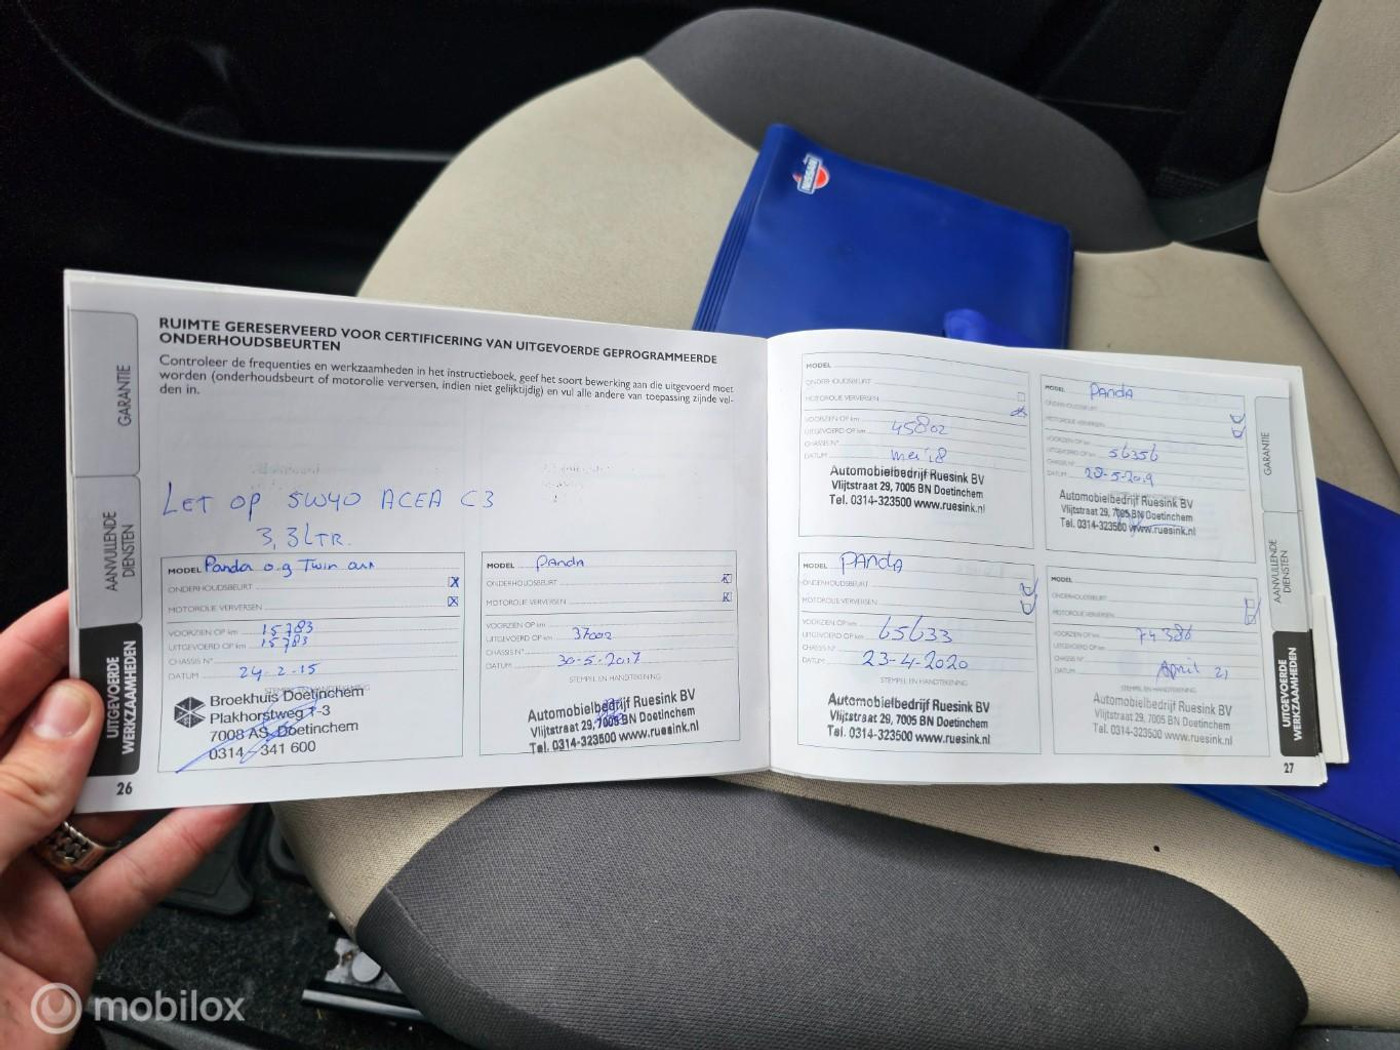 NISSAN
GARANTIE
AANVULLENDE
DIENSTEN
UITGEVOERDE
WERKZAAMHEDEN
RUIMTE GERESERVEERD VOOR CERTIFICERING VAN UITGEVOERDE GEPROGRAMMEERDE
ONDERHOUDSBEURTEN
Controleer de frequenties en werkzaamheden in het instructieboek, geef het soort bewerking aan die uitgevoerd moet
worden (onderhoudsbeurt of motorolie verversen, indien niet gelijktijdig) en vul alle andere van toepassing zijnde vel-
den in.
LET OP 5W40 ACEA C3
3,3 LTR.
MODEL Panda 0.9 Twin
ONDERHOUDSBEURT
MOTOROLIE VERVERSEN
VOORZIEN OP km 15783
UITGEVOERD OP km 15783
CHASSIS N°
DATUM 24-2-15
Broekhuis Doetinchem
Plakhorstweg 1-3
7008 AS Doetinchem
0314 - 341 600
26
MODEL PANDA
ONDERHOUDSBEURT
MOTOROLIE VERVERSEN
VOORZIEN OP km
UITGEVOERD OP km 37002
CHASSIS N°
DATUM 30-5-2017
STEMPEL EN HANDTEKENING
Automobielbedrijf Ruesink BV
Vlijtstraat 29, 7005 BN Doetinchem
Tel. 0314-323500 www.ruesink.nl
MODEL
ONDERHOUDSBEURT
MOTOROLIE VERVERSEN
VOORZIEN OP km
UITGEVOERD OP km 45802
CHASSIS N°
DATUM mei 18
Automobielbedrijf Ruesink BV
Vlijtstraat 29, 7005 BN Doetinchem
Tel. 0314-323500 www.ruesink.nl
MODEL PANDA
ONDERHOUDSBEURT
MOTOROLIE VERVERSEN
VOORZIEN OP km
UITGEVOERD OP km 56356
CHASSIS N°
DATUM 28-5-2019
Automobielbedrijf Ruesink BV
Vlijtstraat 29, 7005 BN Doetinchem
Tel. 0314-323500 www.ruesink.nl
MODEL PANDA
ONDERHOUDSBEURT
MOTOROLIE VERVERSEN
VOORZIEN OP km
UITGEVOERD OP km 65633
CHASSIS N°
DATUM 23-4-2020
STEMPEL EN HANDTEKENING
Automobielbedrijf Ruesink BV
Vlijtstraat 29, 7005 BN Doetinchem
Tel. 0314-323500 www.ruesink.nl
MODEL
ONDERHOUDSBEURT
MOTOROLIE VERVERSEN
VOORZIEN OP km 74386
UITGEVOERD OP km
CHASSIS N°
DATUM April 21
STEMPEL EN HANDTEKENING
Automobielbedrijf Ruesink BV
Vlijtstraat 29, 7005 BN Doetinchem
Tel. 0314-323500 www.ruesink.nl
GARANTIE
AANVULLENDE
DIENSTEN
UITGEVOERDE
WERKZAAMHEDEN
27
mobilox